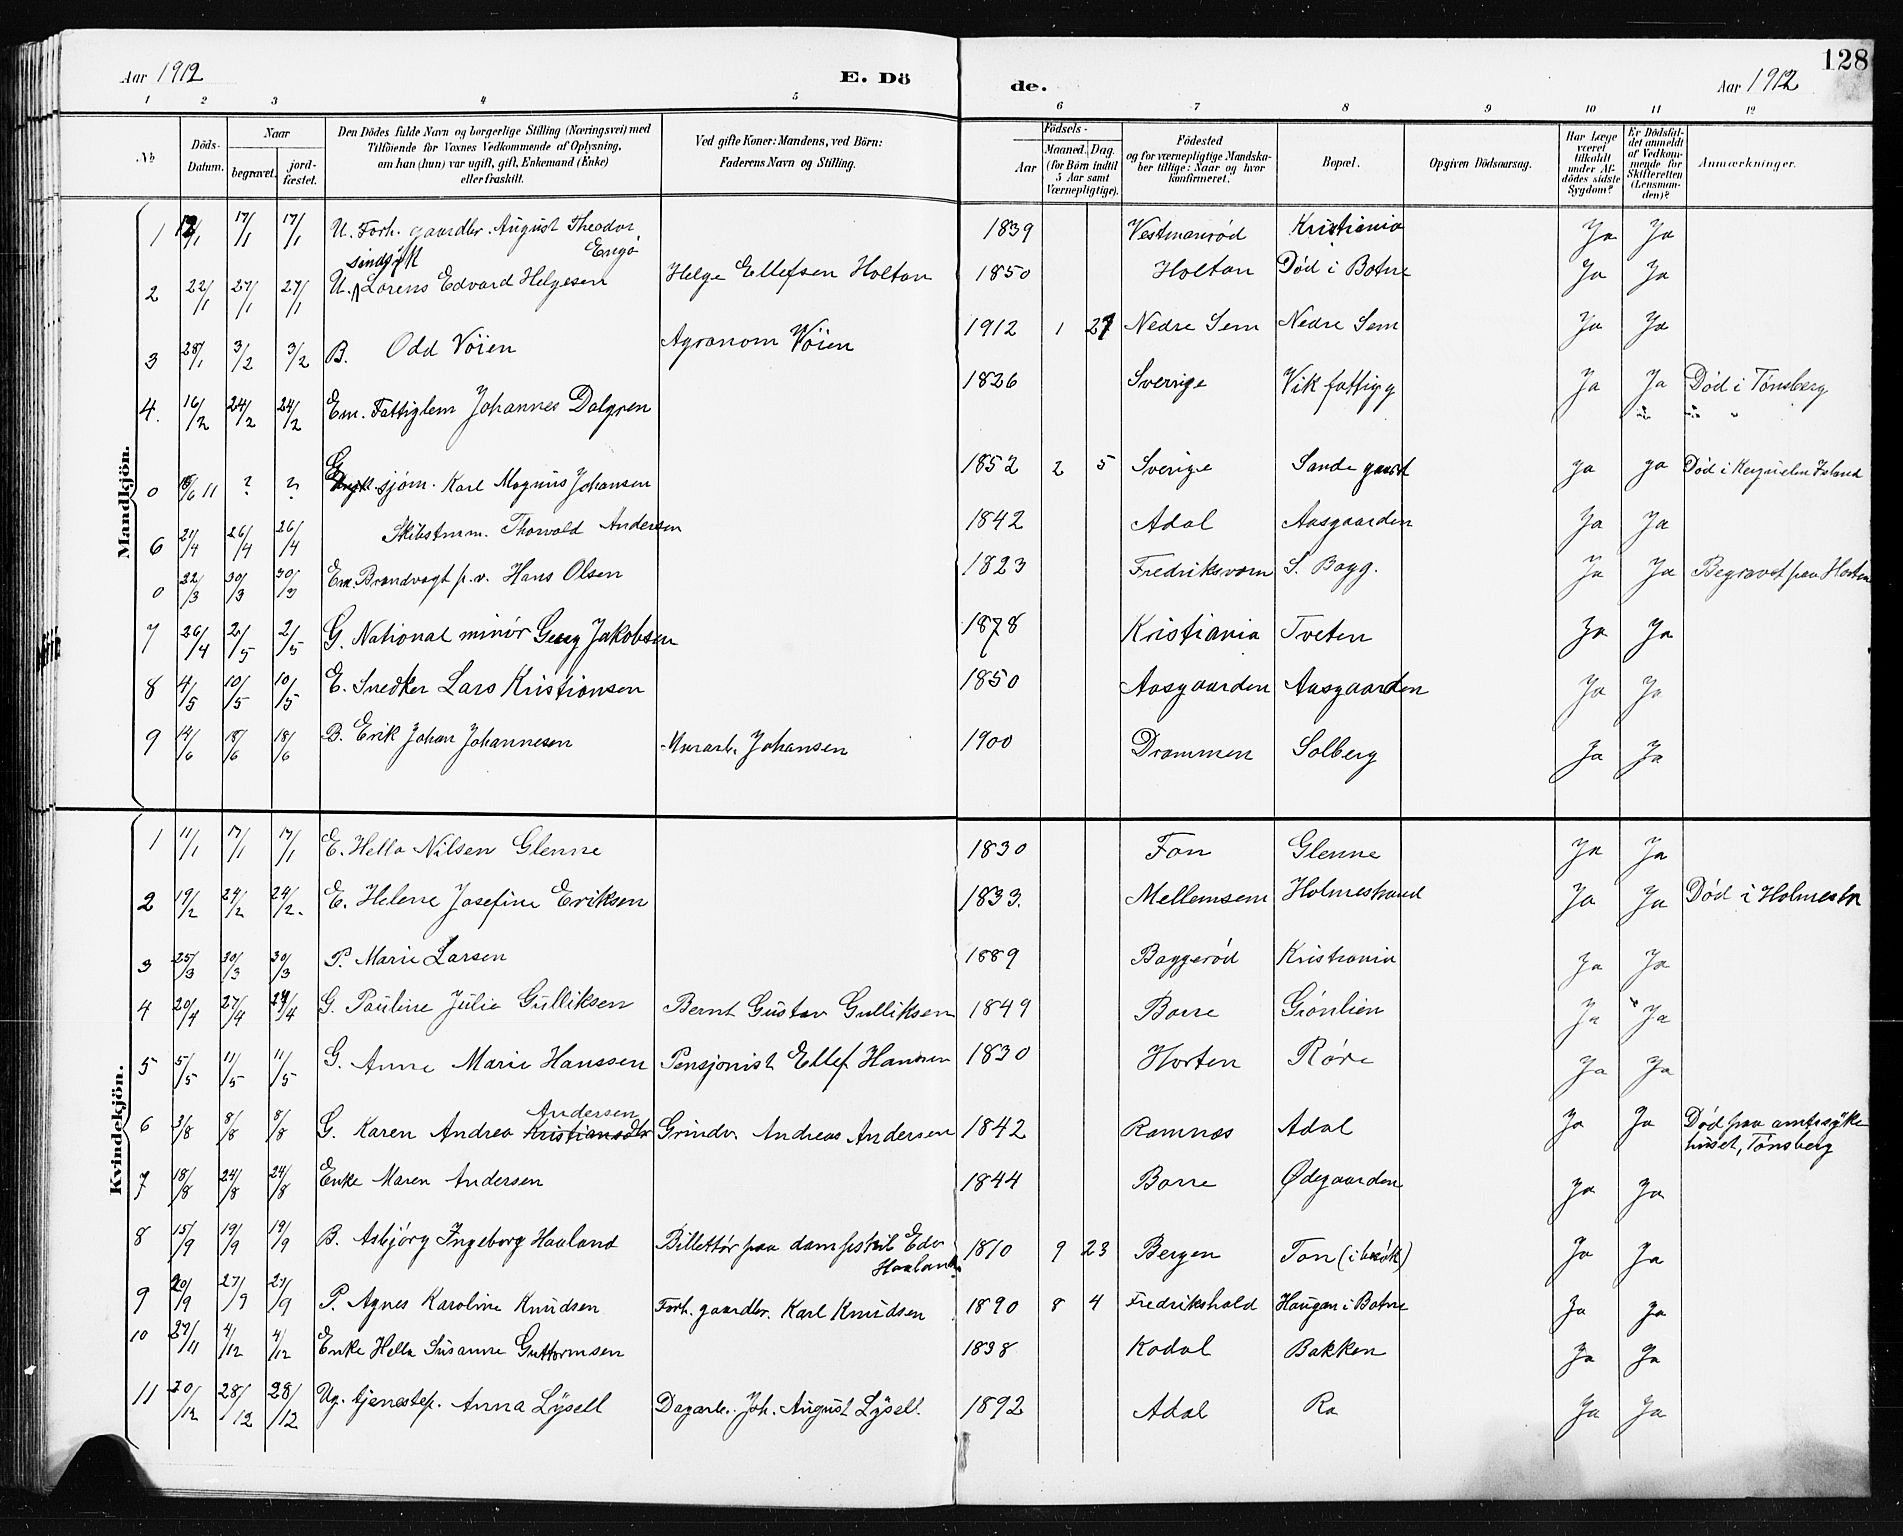 128
Aar 1912 E. Dö de. Aar 1912
1 2 3 4 5 6 7 8 9 10 11 12
No
Döds-Datum.
Naar
begravet. jordfæstet.
Den Dödes fulde Navn og borgerlige Stilling (Næringsvei) med
Tilföiende for Voxnes Vedkommende af Oplysning,
om han (hun) var ugift, gift, Enkemand (Enke)
eller fraskilt.
Ved gifte Koner: Mandens, ved Börn:
Faderens Navn og Stilling.
Födsels-
Aar Maaned. Dag.
(for Börn indtil
5 Aar samt
Værnepligtige).
Födested
og for værnepligtige Mandskaber tillige: Naar og hvor
konfirmeret.
Bopæl.
Opgiven Dödsaarsag.
Har Læge
været
tilkaldt
under Afdödes sidste
Sygdom?
Er Dödsfaldet anmeldt
af Vedkommende for
Skifteretten
(Lensmanden)?
Anmærkninger.
Mandkjön.
1 12/1 17/1 17/1 U. Forh. gaardbr. August Theodor Engø 1839 Vestmanrød Kristiania Ja Ja
sindsyk
2 22/1 27/1 27/1 U. Lorens Edvard Helgesen Helge Ellefsen Holtan 1850 Holtan Død i Botne Ja Ja
3 28/1 3/2 3/2 B. Odd Vöien Agronom Vöien 1912 1 27 Nedre Sem Nedre Sem Ja Ja
4. 16/2 24/2 24/2 Em. Fattiglem Johannes Dalgren 1826 Sverrige Vik fattigg Ja Ja Død i Tønsberg
0 /6 11 ? ? G. sjøm. Karl Magnus Johansen 1852 2 5 Sverige Sande gaard Ja Ja Død i Kerguelen Island
6 21/4 26/4 26/4 Skibstmm. Thorvald Andersen 1842 Adal Aasgaarden Ja Ja
0 22/3 30/3 30/3 Em. Brandvagt p.v. Hans Olsen 1823 Fredriksværn S. Bagg. Ja Ja Begravet paa Horten
7 26/4 2/5 2/5 G. National minør Georg Jakobsen 1878 Kristiania Tveten Ja Ja
8 4/5 10/5 10/5 E. Snedker Lars Kristiansen 1850 Aasgaarden Aasgaarden Ja Ja
9 14/6 18/6 18/6 B. Erik Johan Johannesen Murarb. Johansen 1900 Drammen Solberg Ja Ja
Kvindekjön.
1 11/1 17/1 17/1 E. Hella Nilsen Glenne 1830 Fon Glenne Ja Ja
2 19/2 24/2 24/2. E. Helene Josefine Eriksen 1833. Mellemsem Holmestrand Ja Ja Død i Holmestr
3 25/3 30/3 30/3 P. Marie Larsen 1889 Baggerød Kristiania Ja Ja
4 20/4 27/4 27/4 G. Pauline Julie Gulliksen Bernt Gustav Gulliksen 1849 Borre Grønlien Ja Ja
5 5/5 11/5 11/5 G. Anne Marie Hanssen Pensjonist Ellef Hansen 1830 Horten Røre Ja Ja
Andersen
6 3/8 8/8 8/8 G. Karen Andrea Kristiansdtr Grindv. Andreas Andersen 1842 Ramnæs Adal Ja Ja Død paa amtssyke
huset, Tønsberg
7 18/8 24/8 24/8 Enke Maren Andersen 1844 Borre Ødegaarden Ja Ja
8 15/9 19/9 19/9 B. Asbjørg Ingeborg Haaland Billettør paa dampskib Edv. Haaland 1910 9 23 Bergen Ton (i besøk) Ja Ja
9 20/9 27/9 27/9 P. Agnes Karoline Knudsen Forh. gaardbr. Karl Knudsen 1890 8 4 Fredrikshald Haugan i Botne Ja Ja
10 27/11 4/12 4/12 Enke Hella Susanne Guttormsen 1838 Kodal Bakken Ja Ja
11 20/12 28/12 28/12 Ug. tjenestep. Anna Lysell Dagarb. Joh. August Lysell. 1892 Adal Ra Ja Ja